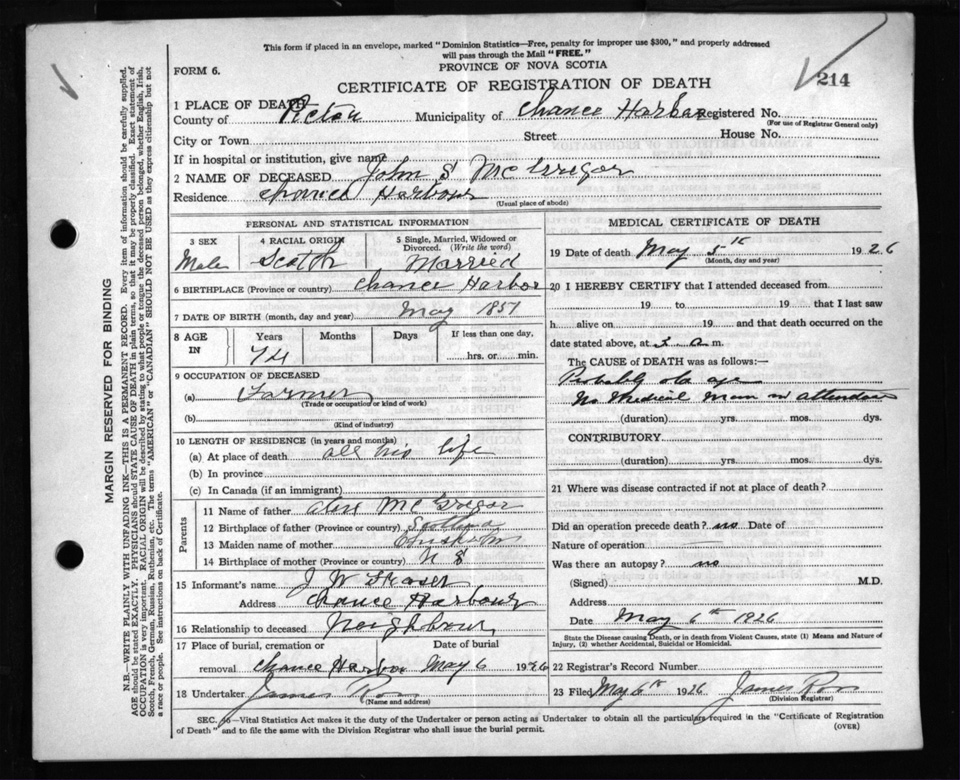 This form if placed in an envelope, marked "Dominion Statistics—Free, penalty for improper use $300," and properly addressed
will pass through the Mail "FREE."
FORM 6.
PROVINCE OF NOVA SCOTIA
CERTIFICATE OF REGISTRATION OF DEATH
214
1 PLACE OF DEATH
County of Pictou Municipality of Chance Harbor Registered No.
(For use of Registrar General only)
City or Town Street House No.
If in hospital or institution, give name
2 NAME OF DECEASED John S McGregor
Residence Chance Harbour
(Usual place of abode)
PERSONAL AND STATISTICAL INFORMATION
3 SEX 4 RACIAL ORIGIN 5 Single, Married, Widowed or
Divorced. (Write the word)
Male Scotch Married
6 BIRTHPLACE (Province or country) Chance Harbor
7 DATE OF BIRTH (month, day and year) May 1851
8 AGE IN Years Months Days If less than one day,
74 hrs. or min.
9 OCCUPATION OF DECEASED
(a) Farmer
(Trade or occupation or kind of work)
(b)
(Kind of industry)
10 LENGTH OF RESIDENCE (in years and months)
(a) At place of death all his life
(b) In province
(c) In Canada (if an immigrant)
Parents
11 Name of father Alex McGregor
12 Birthplace of father (Province or country)
13 Maiden name of mother Chisholm
14 Birthplace of mother (Province or country) N S
15 Informant's name J W Fraser
Address Chance Harbour
16 Relationship to deceased Neighbour
17 Place of burial, cremation or Date of burial
removal Chance Harbor May 6 1926
18 Undertaker James Ross
(Name and address)
MEDICAL CERTIFICATE OF DEATH
19 Date of death May 5th 1926
(Month, day and year)
20 I HEREBY CERTIFY that I attended deceased from
19 to 19 that I last saw
h alive on 19 and that death occurred on the
date stated above, at 3 a m.
The CAUSE of DEATH was as follows:
Probably old age
No Medical Man in attendance
(duration) yrs. mos. dys.
CONTRIBUTORY
(duration) yrs. mos. dys.
21 Where was disease contracted if not at place of death?
Did an operation precede death? no Date of
Nature of operation
Was there an autopsy? no
(Signed) M.D.
Address
Date May 6th 1926
State the Disease causing Death, or in death from Violent Causes, state (1) Means and Nature of
Injury, (2) whether Accidental, Suicidal or Homicidal.
22 Registrar's Record Number
23 Filed May 6th 1926 James Ross
(Division Registrar)
SEC. 16—Vital Statistics Act makes it the duty of the Undertaker or person acting as Undertaker to obtain all the particulars required in the "Certificate of Registration
of Death" and to file the same with the Division Registrar who shall issue the burial permit. (OVER)
MARGIN RESERVED FOR BINDING
N.B.—WRITE PLAINLY WITH UNFADING INK—THIS IS A PERMANENT RECORD. Every item of information should be carefully supplied.
AGE should be stated EXACTLY. PHYSICIANS should STATE CAUSE OF DEATH in plain terms, so that it may be properly classified. Exact statement of
OCCUPATION is very important. RACIAL ORIGIN will be described by stating to what people or tongue the deceased person belonged, whether English, Irish,
Scotch, French, German, Russian, Ruthenian, etc. The terms "AMERICAN" or "CANADIAN" SHOULD NOT BE USED as they express citizenship but not
a race or people. See instructions on back of Certificate.